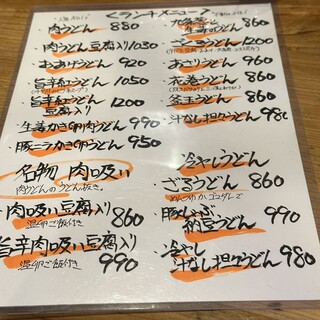 <ランチメニュー>
肉うどん 880
肉うどん豆腐入り1030
おあげうどん 920
旨辛うどん 1050
旨辛玉うどん 1200
生姜かき卵肉うどん 990
豚ニラかき卵うどん 950
名物 肉吸い
肉うどんのうどん抜き。
・肉吸い豆腐入り 860
温卵ご飯付き
旨辛肉吸い豆腐入り 990
温卵ご飯付き
860
うどん 1200
あさりうどん 960
花巻うどん 860
釜玉うどん 860
汁なし担々うどん 980
冷やしうどん
・ざるうどん 860
・豚しゃぶ納豆うどん 990
・冷やし汁なし担々うどん 980